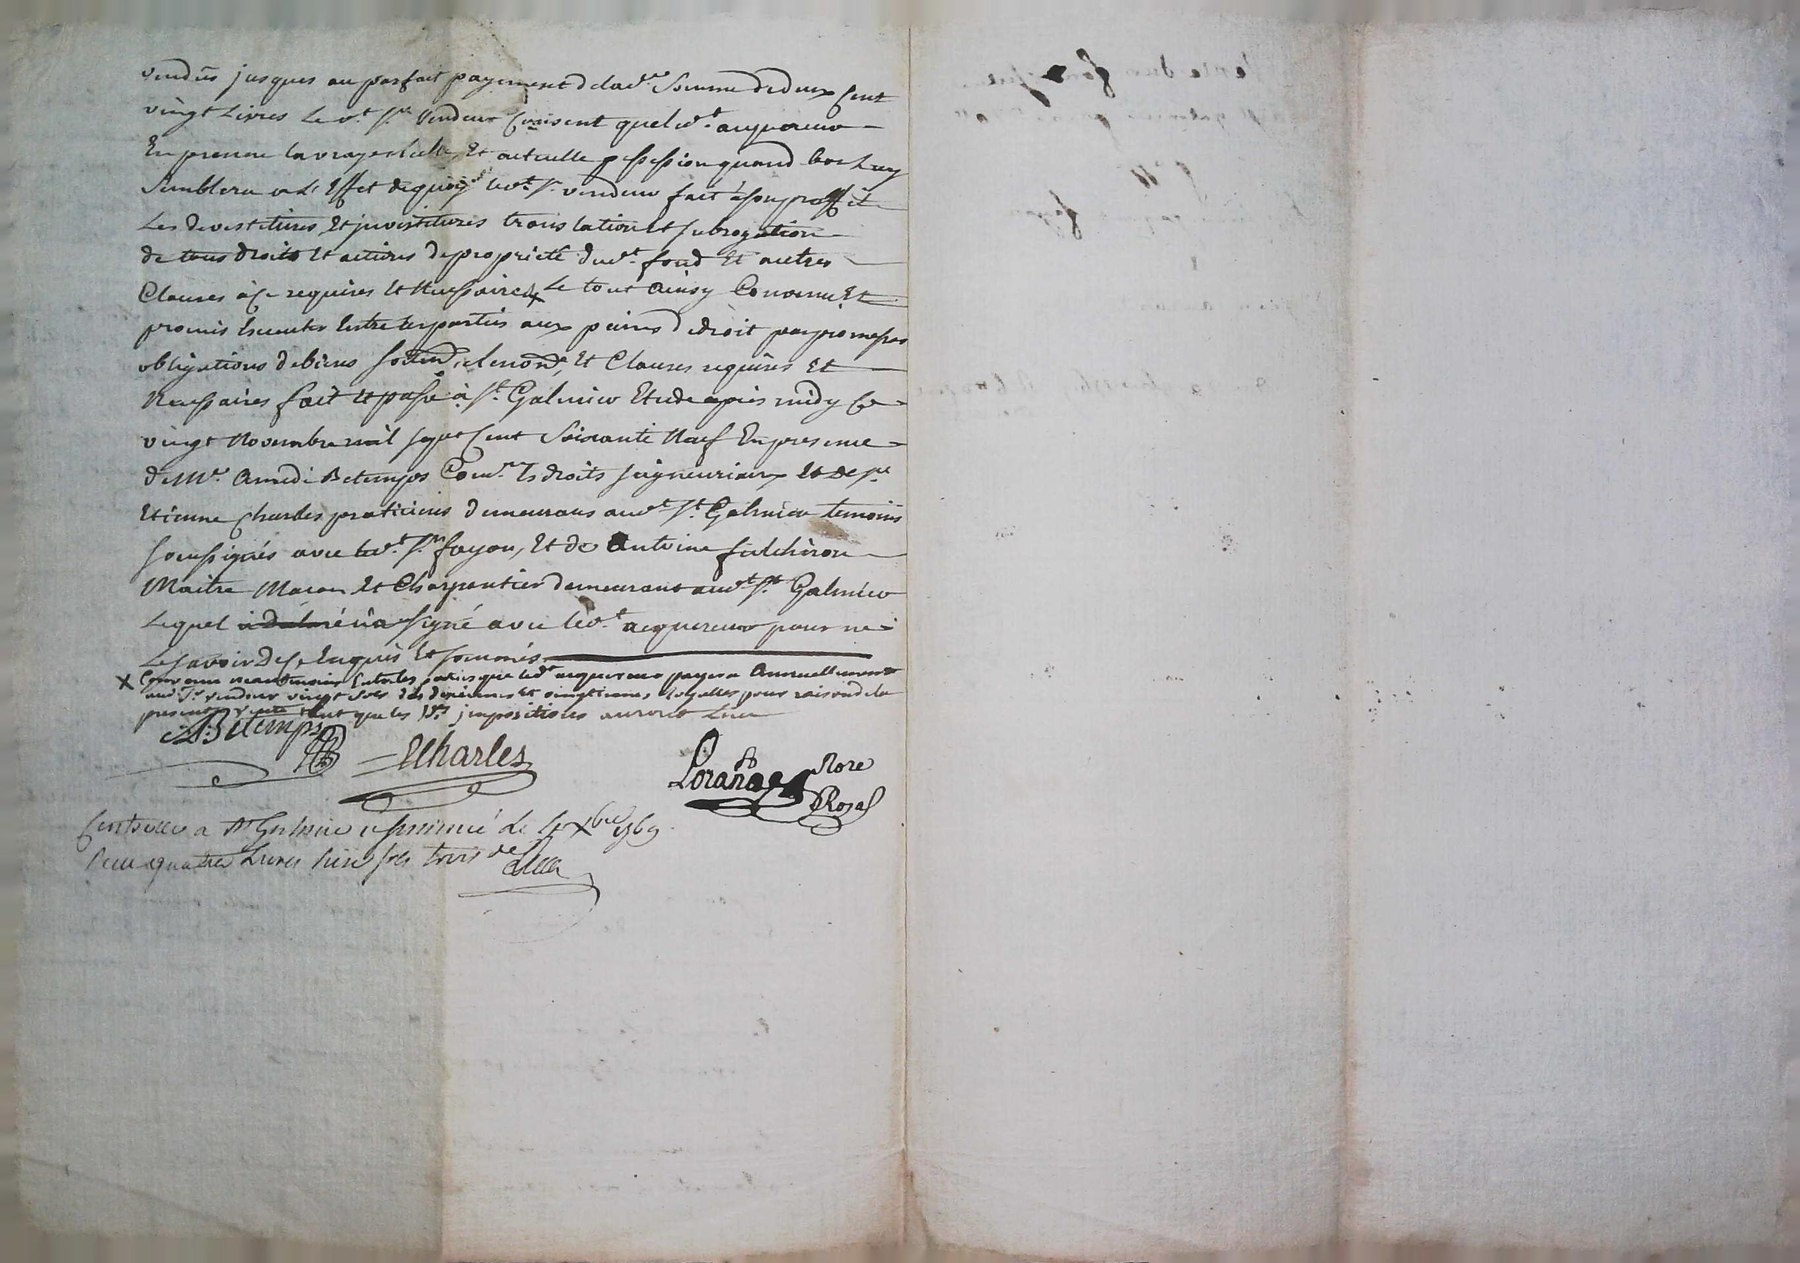 vendüs jusques au parfait payement de lad.e Somme de deux Cent
vingt Livres Le d.t S.r Vendeur Consent que led.t acquereur
En prenne la vraye réelle, Et actuelle possession quand bon Luy
Semblera a L'Effet de quoy led.t S.r vendeur fait à son proffit
Les devestitures, Et investitures translation et subrogation
de tous droits Et actions de proprieté dud.t fond Et autres
Clauses à ce requises Et Necessaires X Le tout Ainsy Convenu Et
promis Executer Entre les parties aux peines de droit par promesses
obligations de biens Et Clauses requises Et
Necessaires fait et passé à S.t Galmier Etude après midy Ce
vingt Novembre mil sept Cent Soixante Neuf En presence
de M.e Amedé Betemps Com.re Es droits seigneuriaux Et de S.r
Etienne Charles praticiens demeurans aud.t S.t Galmier temoins
soussignés avec led.t S.r fayon, Et de Antoine fulchiron
Maitre Macon Et Charpentier demeurant aud.t S.t Galmier
Lequel n'a signé avec led.t acquereur pour ne
Le savoir de ce Enquis Et sommés
X Convenu neantmoins Entre les parties que led.t acquereur payera Annuellement
aud. S.r vendeur vingt sols des dixiemes Et vingtiemes Royalles pour raison de la
presente vente tant que les d.es impositions auront Lieu
A. Betemps
ECharles
Lorange Nore
Royal
Controllé a S.t Galmier le X.bre 1769
Reçu quatre Livres seize sols trois d.